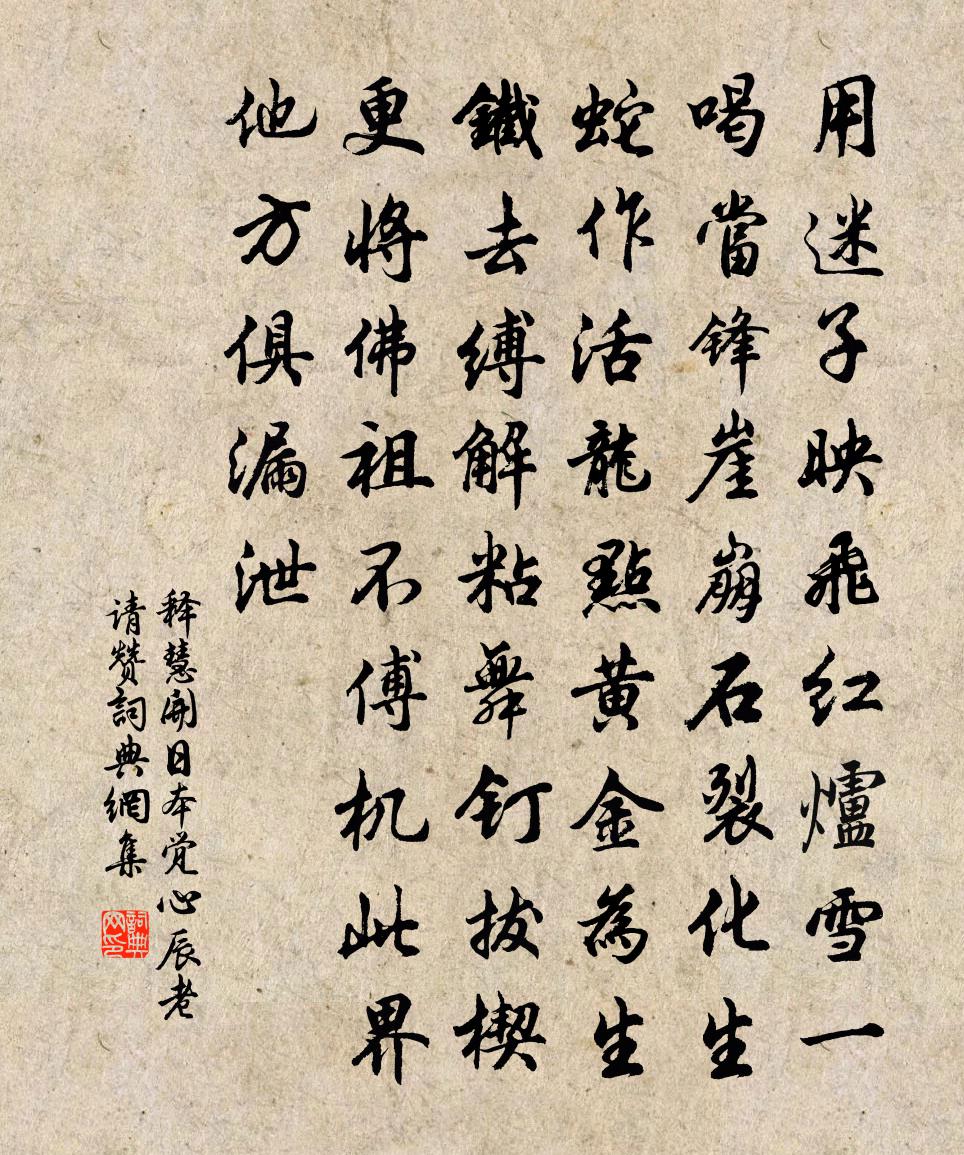 用迷子映飛红爐雪一
喝當鋒崖崩石裂化生
蛇作活龍點黃金為生
鐵去縛解粘舞釘拔楔
更将佛祖不傅机此界
他方俱漏泄
释慧開日本觉心辰老
请赞詞典網集
詞典网印